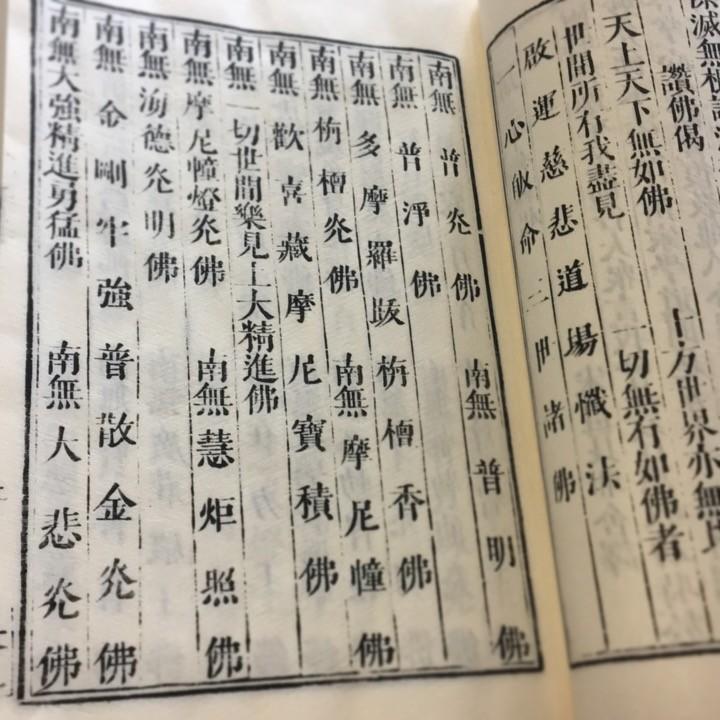 滅無極
讚佛偈
天上天下無如佛 十方世界亦無比
世間所有我盡見 一切無有如佛者
啟運慈悲道場懺法
一心歸命三世諸佛
南無普光佛 南無普明佛
南無普淨佛
南無多摩羅跋栴檀香佛
南無栴檀光佛 南無摩尼幢佛
南無歡喜藏摩尼寶積佛
南無一切世間樂見上大精進佛
南無摩尼幢燈光佛 南無慧炬照佛
南無海德光明佛
南無金剛牢強普散金光佛
南無大強精進勇猛佛 南無大悲光佛